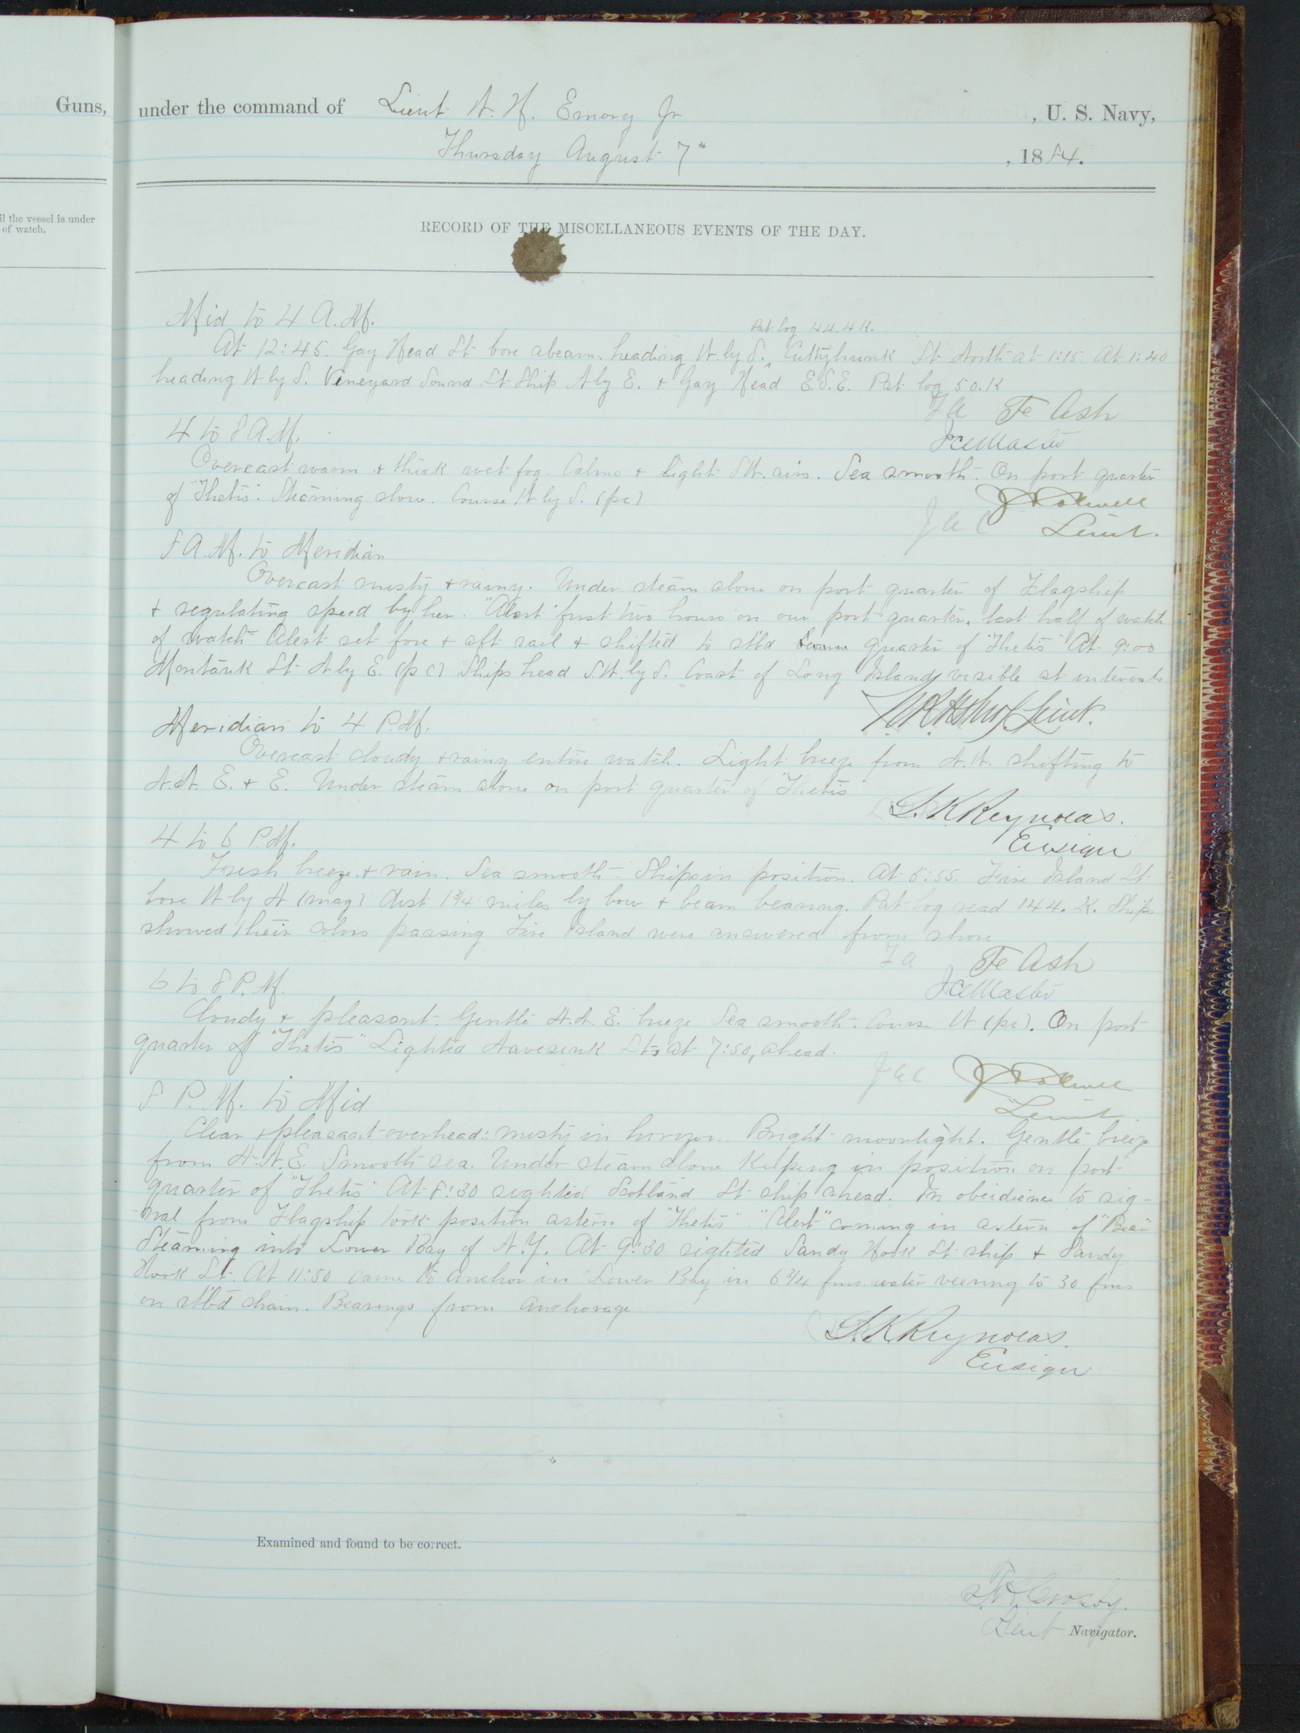 Guns,
under the command of Lieut W. H. Emory Jr , U. S. Navy,
Thursday August 7" , 1884.
il the vessel is under
of watch.
RECORD OF THE MISCELLANEOUS EVENTS OF THE DAY.
Mid to 4 A.M.
Pat. log 44.4 K.
At 12:45. Gay Head Lt bore abeam. heading W. by S. Cuttyhunk Lt North at 1:15 At 1:40
heading W by S. Vineyard Sound Lt Ship N by E. & Gay Head E.S.E. Pat log 50. K
F A F e Ash
Ice Master
4 to 8 A.M.
Overcast warm & thick wet fog. Calms & light SW. airs. Sea smooth. On port quarter
of "Thetis". Steaming slow. Course W by S. (pc)
J C Colwell
Lieut.
8 A.M. to Meridian
Overcast misty & rainy. Under steam alone on port quarter of Flagship
& regulating speed by her. "Alert" first two hours on our port quarter. last half of watch
of watch Alert set fore & aft sail & shifted to stbd quarter of "Thetis" At 9:00
Montauk Lt N by E. (p c) Ships head S.W. by S. Coast of Long Island visible at intervals
Lieut.
Meridian to 4 P.M.
Overcast cloudy & rainy entire watch. Light breeze from N.N. shifting to
N.N.E. & E. Under steam alone on port quarter of "Thetis"
L. K. Reynolds.
Ensign
4 to 6 P.M.
Fresh breeze & rain. Sea smooth. Ships in position. At 5:55. Fire Island Lt.
bore W by N (mag) dist 1¾ miles by bow & beam bearing. Pat log read 144. K. Ships
showed their colors passing Fire Island were answered from shore
F A F e Ash
Ice Master
6 to 8 P.M.
Cloudy & pleasant. Gentle N.N.E. breeze Sea smooth. Course W (pc). On port
quarter of "Thetis" Lighted Navesink Lts at 7:50, ahead.
J C Colwell
Lieut
8 P.M. to Mid
Clear & pleasant overhead: misty in horizon. Bright moonlight. Gentle breeze
from N.N.E. Smooth sea. Under steam alone Keeping in position on port
quarter of "Thetis" At 8:30 sighted Scotland Lt ship ahead. In obedience to sig-
nal from Flagship took position astern of "Thetis" "Alert" coming in astern of "Bear"
Steaming into Lower Bay of N.Y. At 9:30 sighted Sandy Hook Lt ship & Sandy
Hook Lt. At 11:50 came to anchor in Lower Bay in 6¾ fms. water veering to 30 fms
on stbd chain. Bearings from anchorage
L. K. Reynolds.
Ensign
Examined and found to be correct.
Crosby.
Lieut Navigator.